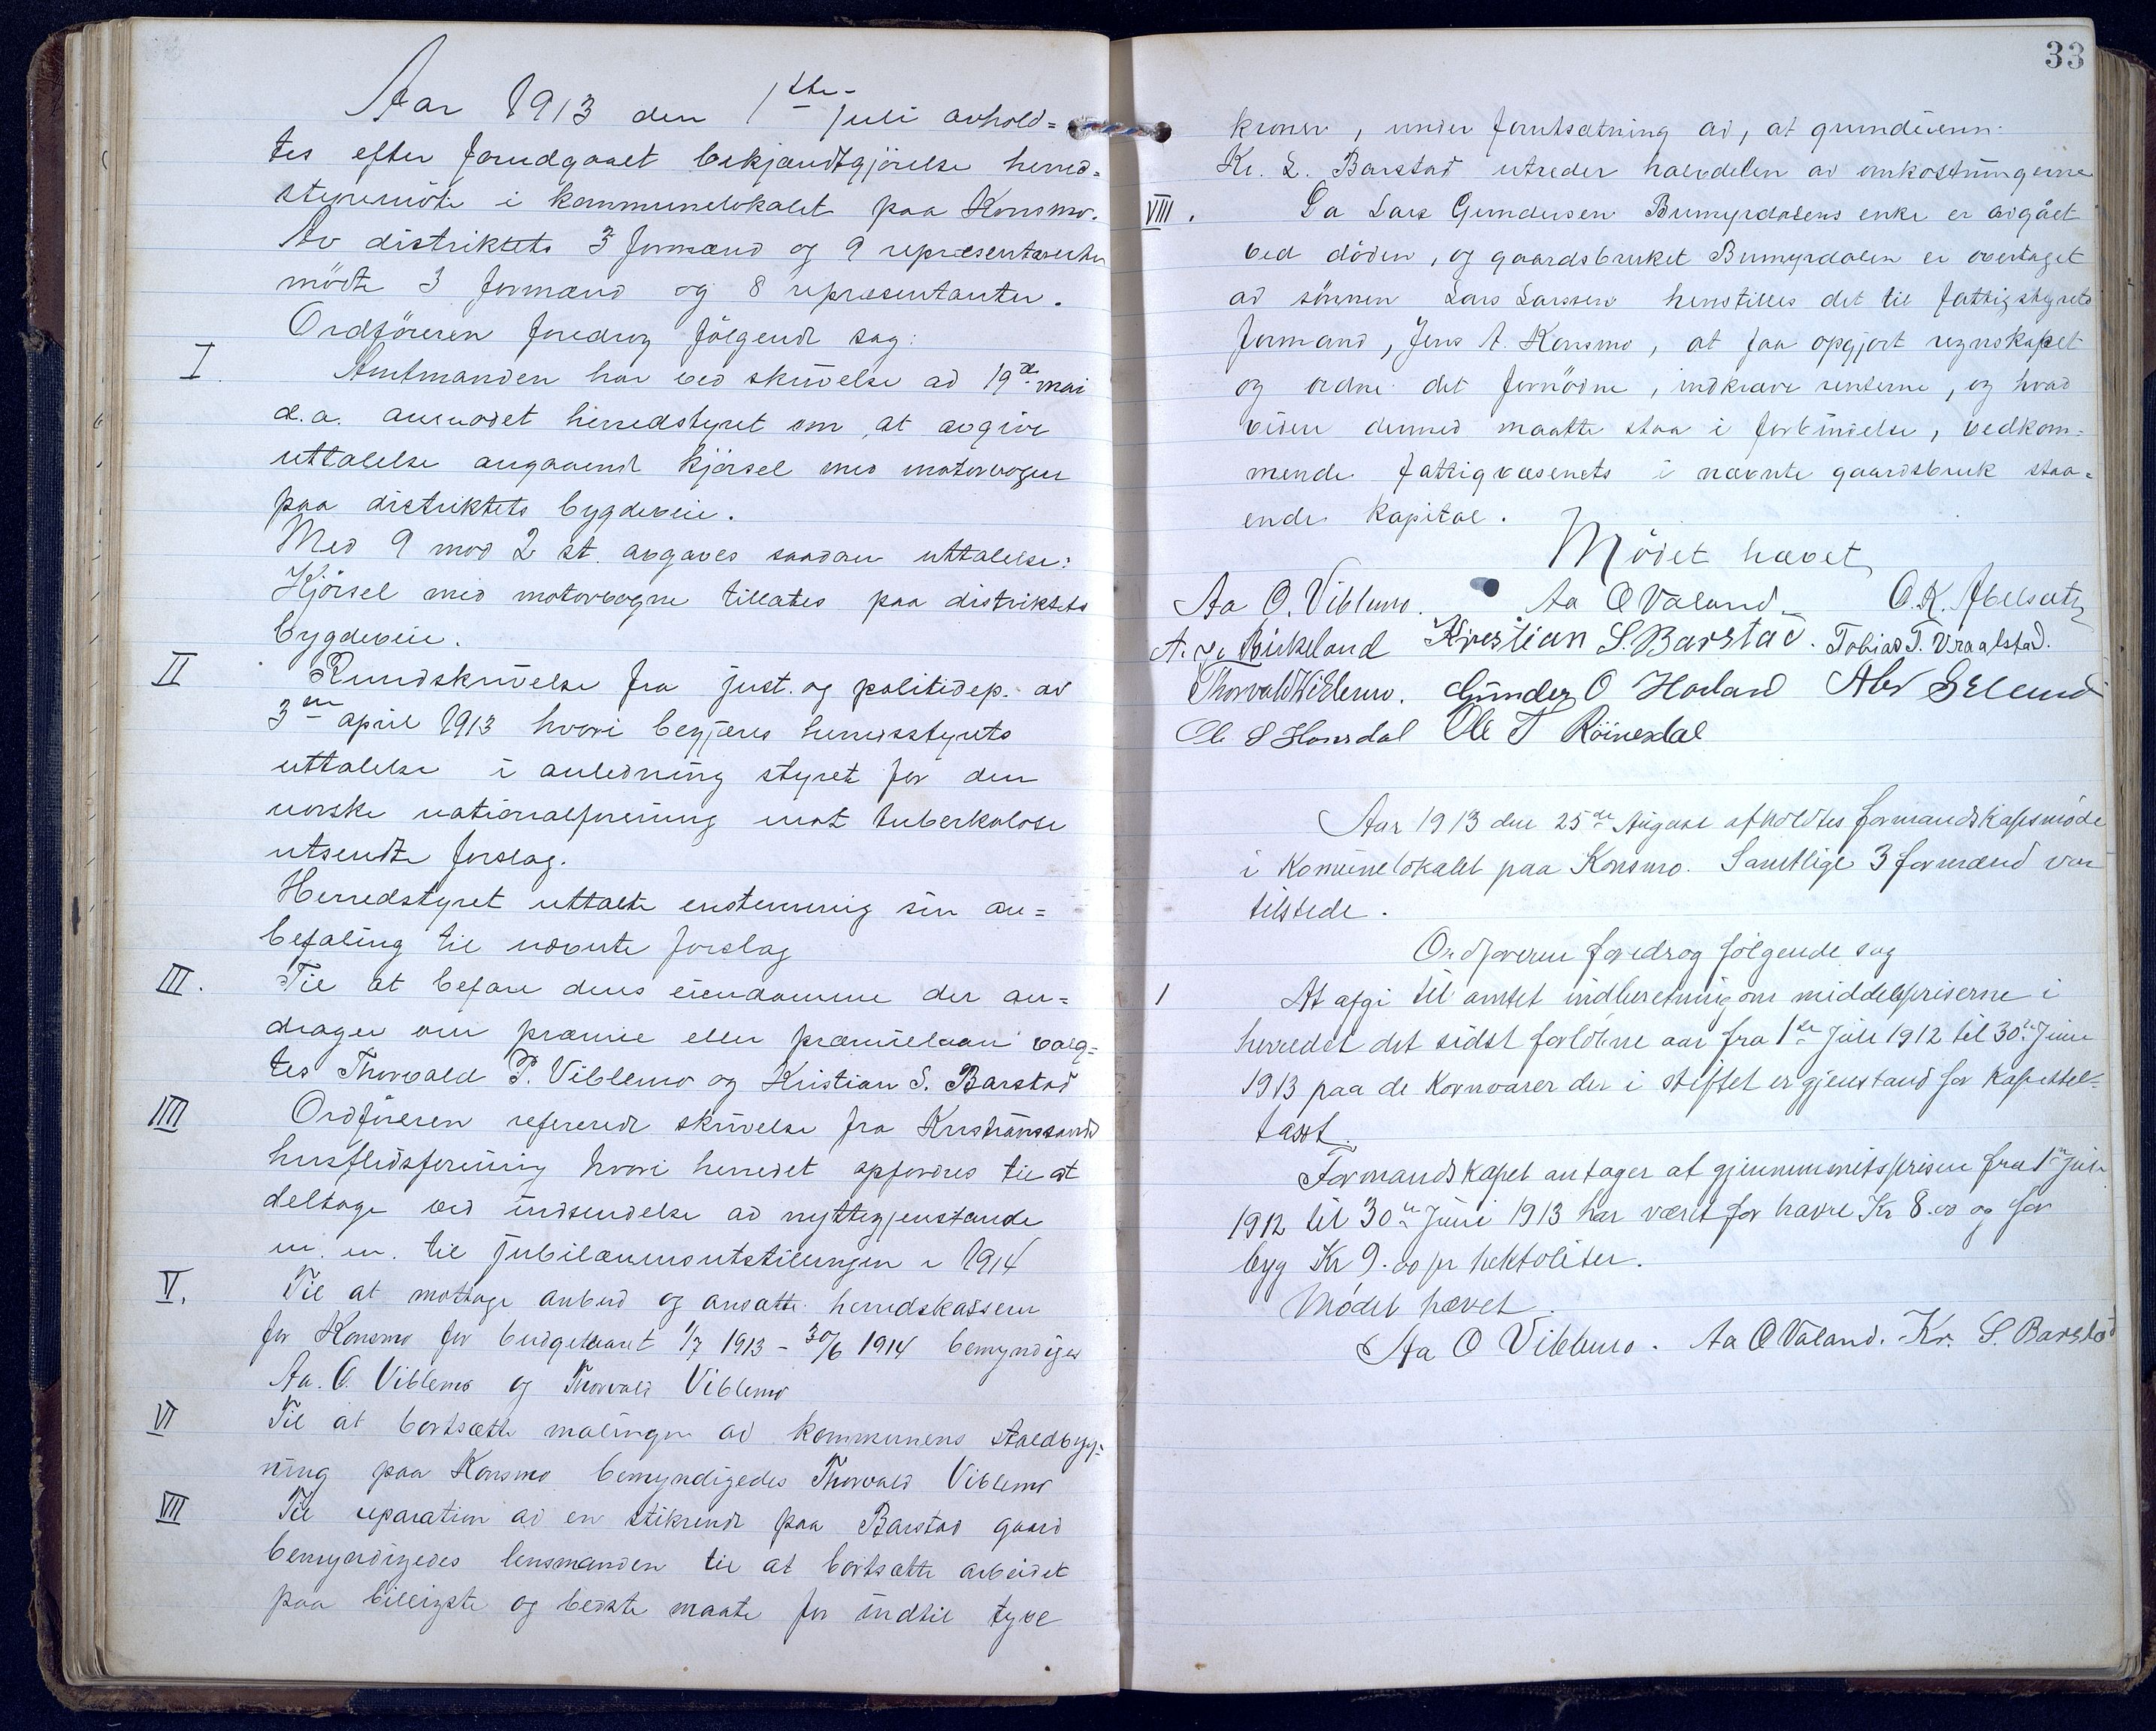 Aar 1913 den 1ste Juli avhold=
tes efter forudgaaet bekjandtgjörelse herred=
styremöte i kommunelokalet paa Konsmo.
Av distriktets 3 formænd og 9 repræsentanter
mödte 3 formænd og 8 repræsentanter.
Ordföreren foredrog fölgende sag:
I. Amtmanden har ved skrivelse ad 19de mai
d.a. anmodet herredstyret om at avgive
uttalelse angaaende kjörsel med motorvogn
paa distriktets bygdeveie.
Med 9 mod 2 st. avgaves saadan uttalelse:
Kjörsel med motorvogne tillates paa distriktets
bygdeveie.
II Rundskrivelse fra just. og politidep. av
3die april 1913 hvori begjæres herredsstyrets
uttalelse i anledning styret for den
norske nationalforening mot tuberkulose
utsendte forslag.
Herredstyret uttalte enstemmig sin an=
befaling til nævnte forslag
III. Til at befare deres eiendomme der an=
drager om præmie eller præmielaan valg=
tes Thorvald P. Viblemo og Kristian S. Barstad
IIII Ordföreren refererede skrivelse fra Kristianssands
husflidsforening hvori herredet opfordres til at
deltage ved indsendelse ad nyttegjenstande
m. m. til jubilæumsutstillingen i 1914
V. Til at mottage anbud og ansatte herredskasserer
for Konsmo for budgetaaret 1/7 1913 - 30/6 1914 bemyndiges
Aa. O. Viblemo og Thorvald Viblemo
VI Til at bortsætte malingen ad kommunens staldbyg=
ning paa Konsmo bemyndigedes Thorvald Viblemo
VII Til reparation ad en stikrende paa Barstad gaard
bemyndigedes lensmanden til at bortsætte arbeidet
paa billigste og bedste maate for indtil tyve
33
kroner, under forutsætning ad, at grundeieren
Kr. S. Barstad utreder halvdelen av omkostningerne
VIII. Da Lars Gundersen Bumyrdalens enke er avgået
ved döden, og gaardsbruket Bumyrdalen er overtaget
ad sönnen Lars Larssen henstilles det til fattigstyrets
formand, Jens A. Konsmo, at faa opgjort regnskapet
og ordne det fornödne, indkræve renterne, og hvad
videre dermed maatte staa i forbindelse, vedkom=
mende fattigvæsenets i nævnte gaardsbruk staa=
ende kapital.
Mödet hævet
Aa O. Viblemo. Aa O Valand. O. K. Abelsæth
A. Birkeland Kristian S. Barstad. Tobias T. Vraalstad.
Thorvald Viblemo. Gunder O Harland Abr S Elund
Ole S Honsdal Ole T Röinesdal
Aar 1913 den 25de August afholdtes formandskapsmöde
i Komunelokalet paa Konsmo. Samtlige 3 formænd var
tilstede.
Ordföreren foredrog fölgende sag
1 At afgi til amtet indberetning om middelspriserne i
herredet det sidst forlöbne aar fra 1ste Juli 1912 til 30te Juni
1913 paa de Kornvarer der i stiftet er gjenstand for Kapittel=
taxt.
Formandskapet antager at gjennemsnitsprisen fra 1ste juli
1912 til 30te Juni 1913 har været for havre Kr 8.00 og for
byg Kr 9.00 pr hektoliter.
Mödet hævet.
Aa O Viblemo. Aa O Valand. Kr. S. Barstad